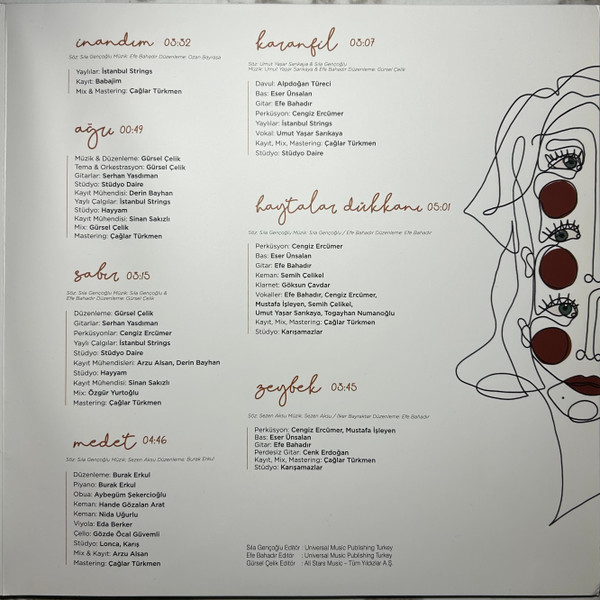 inandım 03:32
Söz: Sıla Gençoğlu Müzik: Efe Bahadır Düzenleme: Ozan Bayraşa
Yaylılar: İstanbul Strings
Kayıt: Babajim
Mix & Mastering: Çağlar Türkmen
ağu 00:49
Müzik & Düzenleme: Gürsel Çelik
Tema & Orkestrasyon: Gürsel Çelik
Gitarlar: Serhan Yasdıman
Stüdyo: Stüdyo Daire
Kayıt Mühendisi: Derin Bayhan
Yaylı Çalgılar: İstanbul Strings
Stüdyo: Hayyam
Kayıt Mühendisi: Sinan Sakızlı
Mix: Gürsel Çelik
Mastering: Çağlar Türkmen
sabır 03:15
Söz: Sıla Gençoğlu Müzik: Sıla Gençoğlu &
Efe Bahadır Düzenleme: Gürsel Çelik
Düzenleme: Gürsel Çelik
Gitarlar: Serhan Yasdıman
Perküsyonlar: Cengiz Ercümer
Yaylı Çalgılar: İstanbul Strings
Stüdyo: Stüdyo Daire
Kayıt Mühendisleri: Arzu Alsan, Derin Bayhan
Stüdyo: Hayyam
Kayıt Mühendisi: Sinan Sakızlı
Mix: Özgür Yurtoğlu
Mastering: Çağlar Türkmen
medet 04:46
Söz: Sıla Gençoğlu Müzik: Sezen Aksu Düzenleme: Burak Erkul
Düzenleme: Burak Erkul
Piyano: Burak Erkul
Obua: Aybegüm Şekercioğlu
Keman: Hande Gözalan Arat
Keman: Nida Uğurlu
Viyola: Eda Berker
Çello: Gözde Öcal Güvemli
Stüdyo: Lonca, Karış
Mix & Kayıt: Arzu Alsan
Mastering: Çağlar Türkmen
karanfil 03:07
Söz: Umut Yaşar Sarıkaya & Sıla Gençoğlu
Müzik: Umut Yaşar Sarıkaya & Efe Bahadır Düzenleme: Gürsel Çelik
Davul: Alpdoğan Türeci
Bas: Eser Ünsalan
Gitar: Efe Bahadır
Perküsyon: Cengiz Ercümer
Yaylılar: İstanbul Strings
Vokal: Umut Yaşar Sarıkaya
Kayıt, Mix, Mastering: Çağlar Türkmen
Stüdyo: Stüdyo Daire
haytalar dükkanı 05:01
Söz: Sıla Gençoğlu Müzik: Sıla Gençoğlu / Efe Bahadır Düzenleme: Efe Bahadır
Perküsyon: Cengiz Ercümer
Bas: Eser Ünsalan
Gitar: Efe Bahadır
Keman: Semih Çelikel
Klarnet: Göksun Çavdar
Vokaller: Efe Bahadır, Cengiz Ercümer,
Mustafa İşleyen, Semih Çelikel,
Umut Yaşar Sarıkaya, Togayhan Numanoğlu
Kayıt, Mix, Mastering: Çağlar Türkmen
Stüdyo: Karışamazlar
zeybek 03:45
Söz: Sezen Aksu Müzik: Sezen Aksu / İlker Bayraktar Düzenleme: Efe Bahadır
Perküsyon: Cengiz Ercümer, Mustafa İşleyen
Bas: Eser Ünsalan
Gitar: Efe Bahadır
Perdesiz Gitar: Cenk Erdoğan
Kayıt, Mix, Mastering: Çağlar Türkmen
Stüdyo: Karışamazlar
Sıla Gençoğlu Editör : Universal Music Publishing Turkey
Efe Bahadır Editör : Universal Music Publishing Turkey
Gürsel Çelik Editör : All Stars Music – Tüm Yıldızlar A.Ş.